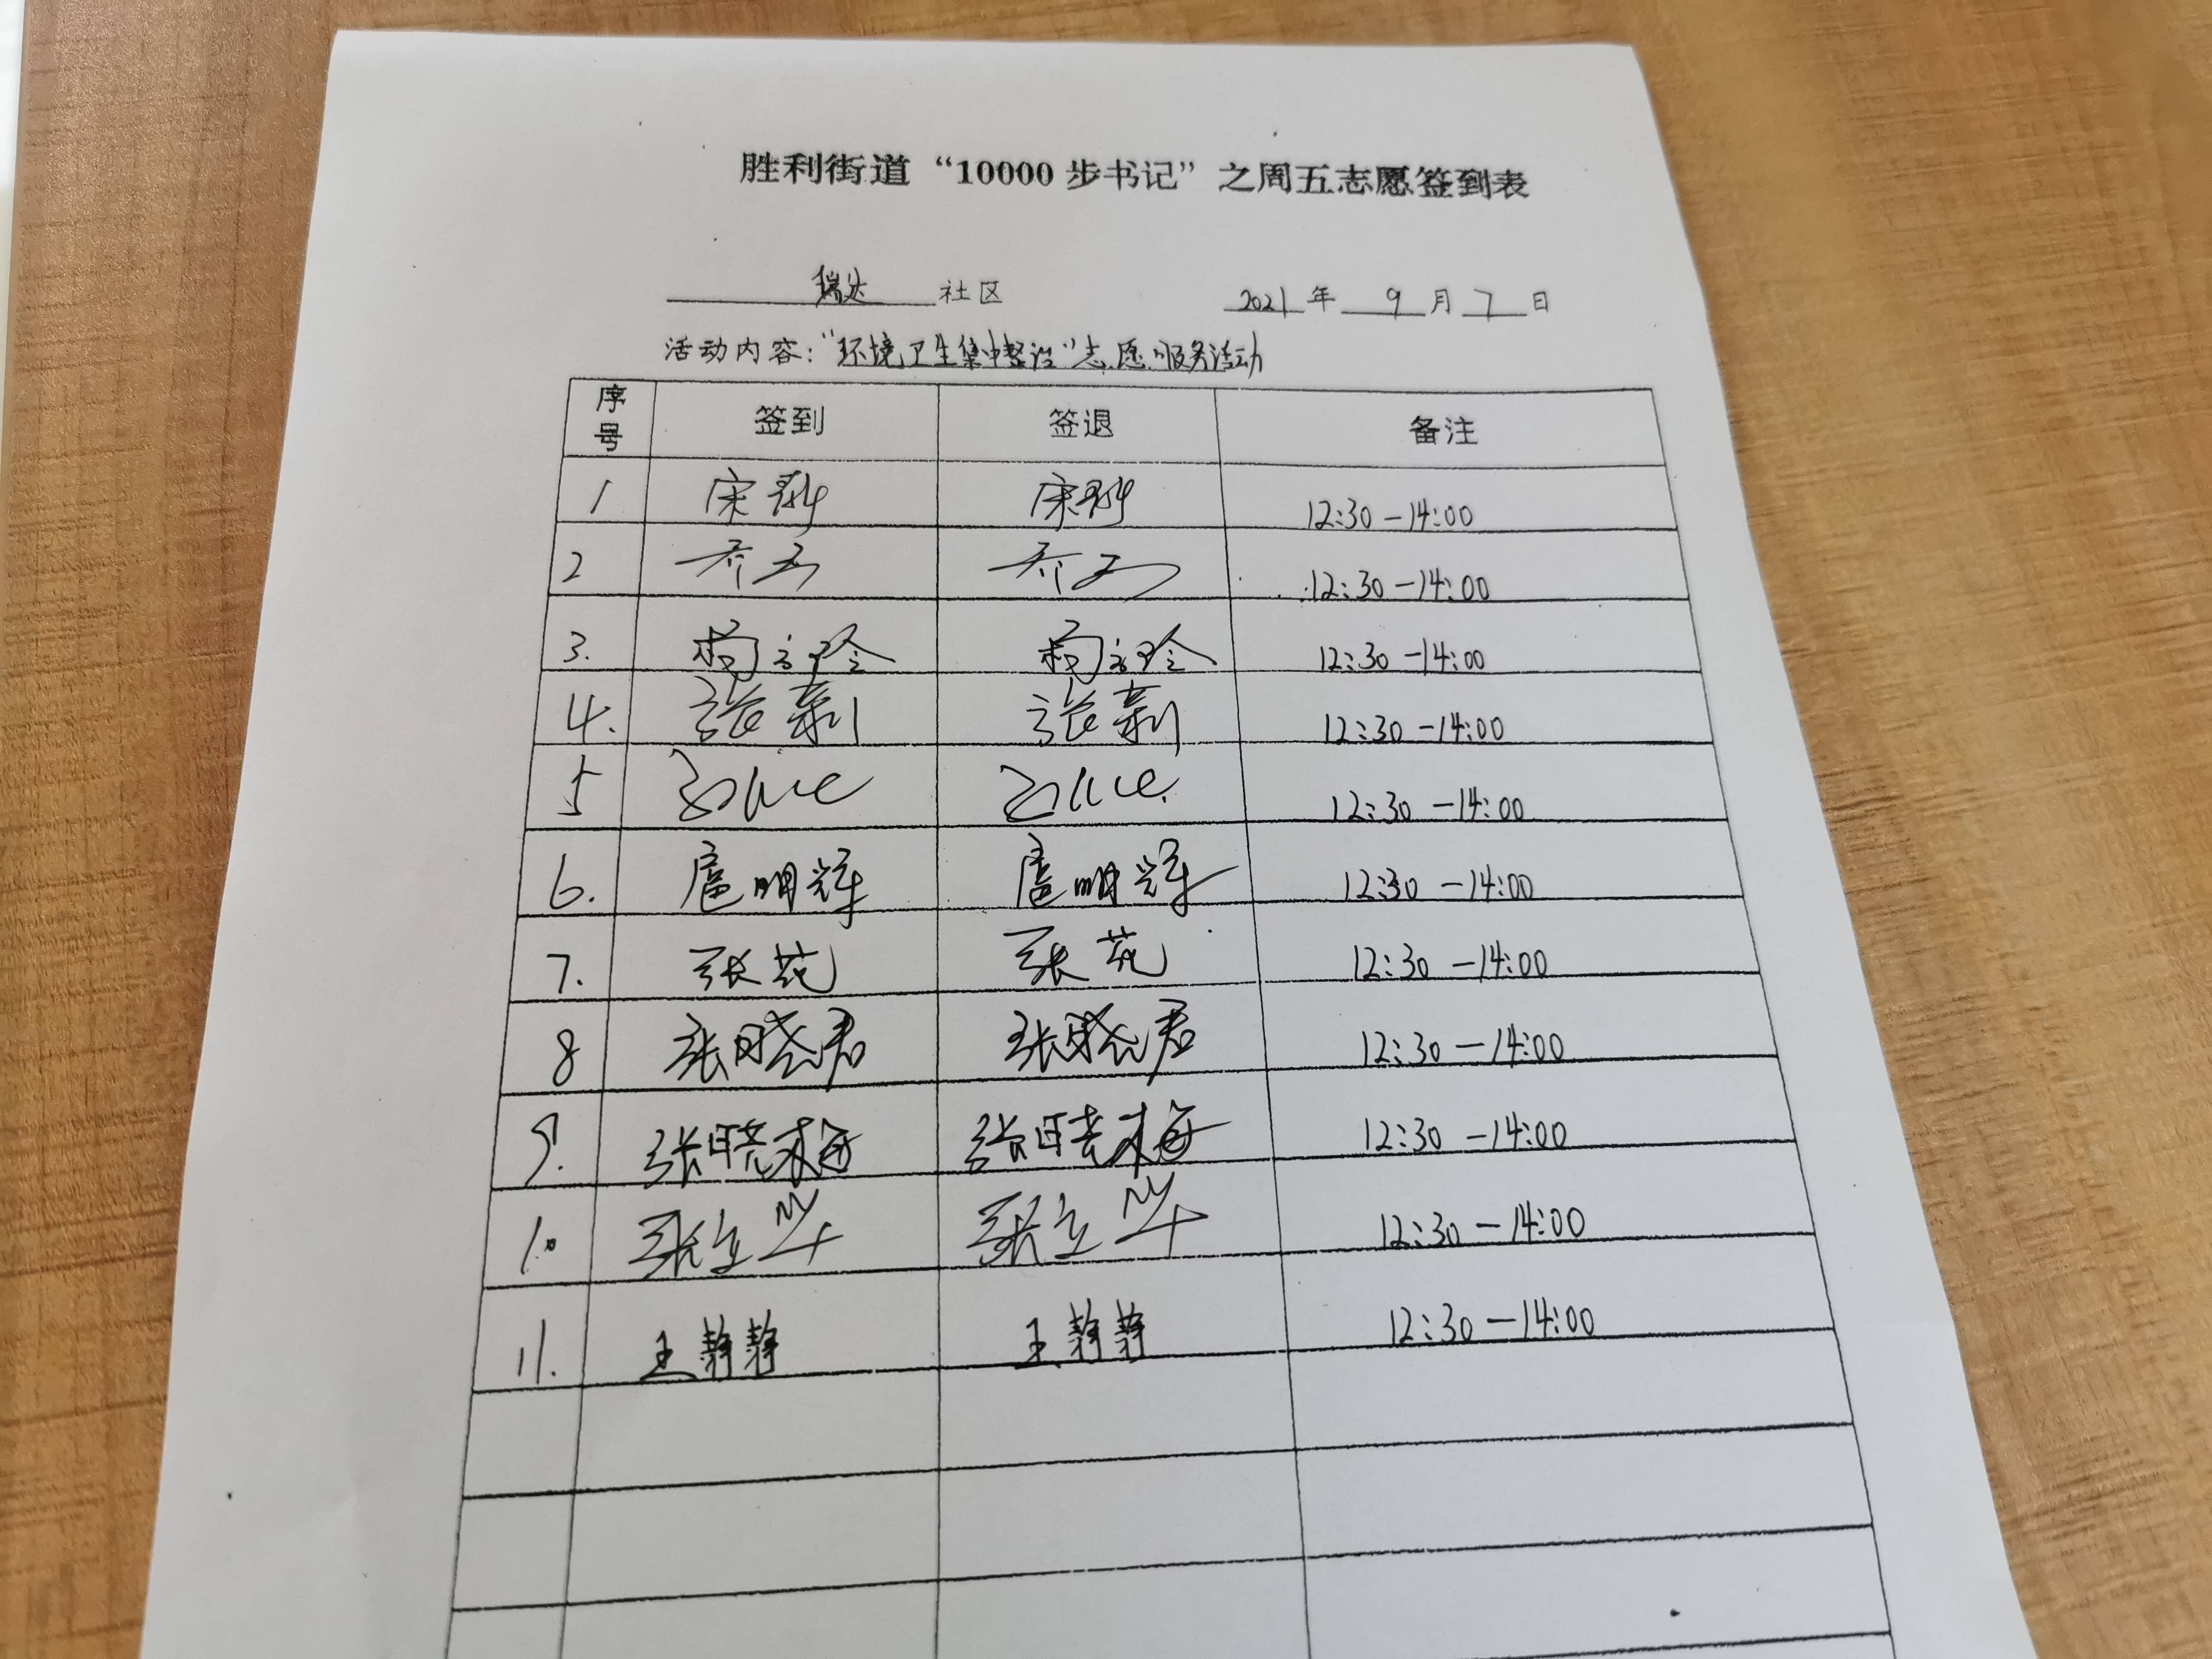 胜利街道“10000步书记”之周五志愿签到表
瑞达社区 2021年9月7日
活动内容：“环境卫生集中整治”志愿服务活动
序号 签到 签退 备注
1 宋 宋 12:30-14:00
2 乔 乔 12:30-14:00
3. 12:30-14:00
4. 张莉 张莉 12:30-14:00
5 12:30-14:00
6. 扈明辉 扈明辉 12:30-14:00
7. 张苑 张苑 12:30-14:00
8 张晓君 张晓君 12:30-14:00
9. 张晓梅 张晓梅 12:30-14:00
10 张立华 张立华 12:30-14:00
11. 王静静 王静静 12:30-14:00